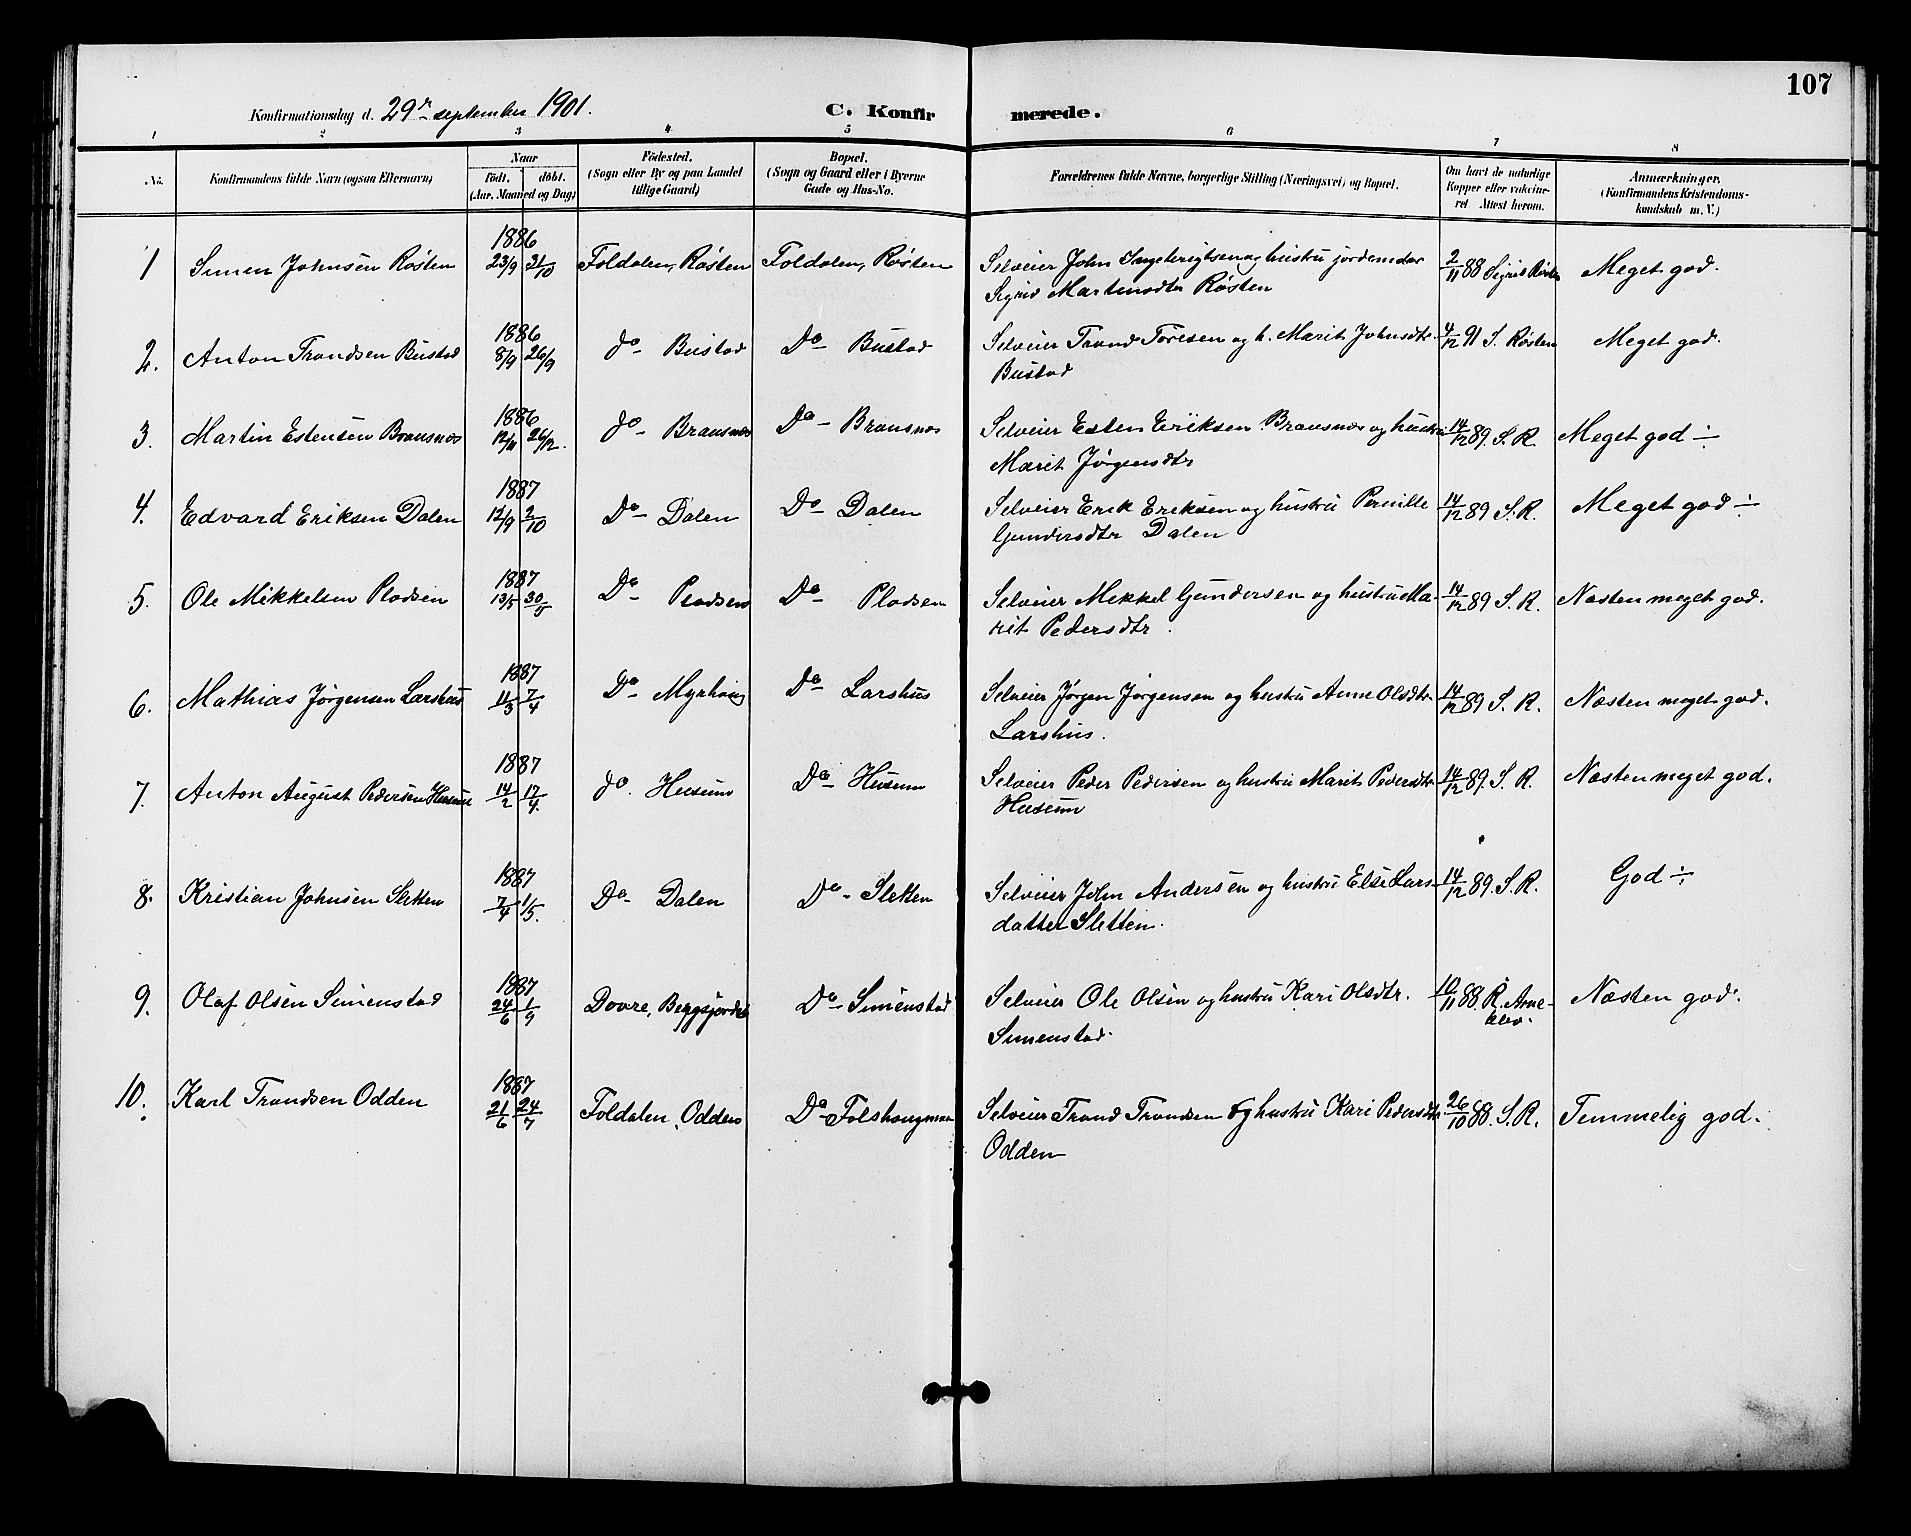 107
Konfirmationsdag d. 29de september 1901. C. Konfirmerede.
1 2 3 4 5 6 7 8
No. Konfirmandens fulde Navn (ogsaa Efternavn) Naar födt. döbt. (Aar, Maaned og Dag) Födested. (Sogn eller By og paa Landet tillige Gaard) Bopæl. (Sogn og Gaard eller i Byerne Gade og Hus-No. Forældrenes fulde Navne, borgerlige Stilling (Næringsvei) og Bopæl. Om havt de naturlige Kopper eller vakcineret Attest herom. Anmærkninger. (Konfirmandens Kristendomskundskab m. V.)
1 Simen Johnsen Røsten 1886 23/9 31/10 Foldalen, Røsten Foldalen, Røsten Selveier John Ingebrigtsen og hustru jordemodor 2/11 88 Sigrid Røsten Meget god.
Sigrid Martinsdtr Røsten
2. Anton Trondsen Bustad 1886 8/9 26/9 do Bustad Do Bustad Selveier Trond Toresen og h. Marit Johnsdtr 4/12 91 S. Røsten Meget god.
Bustad
3. Martin Estensen Bransnes 1886 12/11 26/12. do Bransnes Do Bransnes Selveier Esten Eriksen Bransnes og hustru 14/12 89. S. R. Meget god ÷
Marit Jørgensdtr
4. Edvard Eriksen Dalen 1887 12/9 2/10 Do Dalen Do Dalen Selveier Erik Eriksen og hustru Pernille 14/12 89 S. R. Meget god ÷
Gundersdtr Dalen
5. Ole Mikkelsen Pladsen 1887 13/5 30/5 Do Pladsen Do Pladsen Selveier Mikkel Gundersen og hustru Ma- 14/12 89 S. R. Næsten meget god.
rit Pedersdtr.
6. Mathias Jørgensen Larshus 1887 11/3 7/4 Do Myrhaug Do Larshus Selveier Jørgen Jørgensen og hustru Anne Olsdtr 14/12 89 S. R. Næsten meget god.
Larshus.
7. Anton August Pedersen Husum 1887 14/2 17/4. do. Husum Do Husum Selveier Peder Pedersen og hustru Marit Pedersdtr 14/12 89. S. R. Næsten meget god.
Husum
8. Kristian Johnsen Sletten 1887 7/4 1/5. Do Dalen Do Sletten Selveier John Andersen og hustru Else Lars- 14/12 89. S. R. God ÷
datter Sletten.
9. Olaf Olsen Simenstad 1887 24/6 1/9 Dovre, Do Simenstad Selveier Ole Olsen og hustru Kari Olsdtr. 10/11 88. R. Arne-
klev. Næsten god.
Simenstad.
10. Karl Trondsen Odden 1887 21/6 24/7 Foldalen, Odden Do Selveier Trond Trondsen og hustru Kari Pedersdtr 26/10 88. S. R. Temmelig god.
Odden